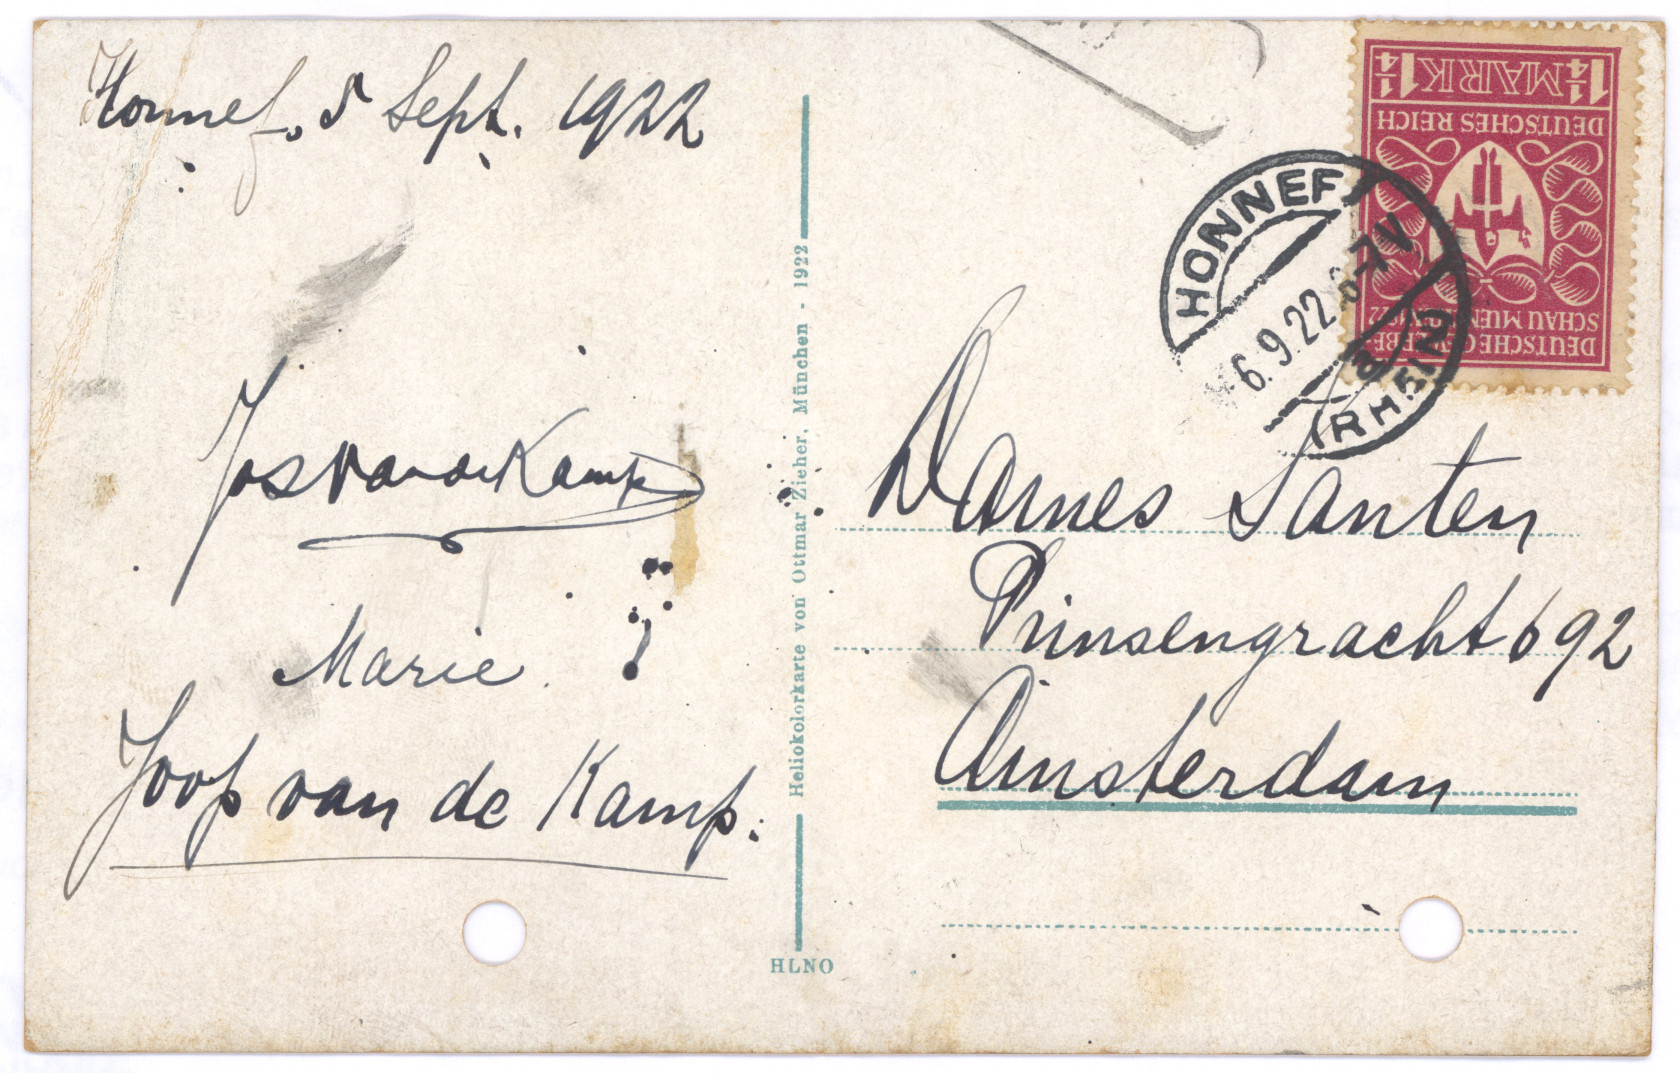 Honnef, 5 Sept. 1922
Jos van de Kamp
Marie
Joop van de Kamp.
Heliokolorkarte von Ottmar Zieher, München - 1922
HLNO
1¼ MARK 1¼
DEUTSCHES REICH
DEUTSCHE GEWERBE-
SCHAU MUENCHEN 1922
HONNEF
6.9.22
(RHEIN)
Dames Santen
Prinsengracht 692
Amsterdam